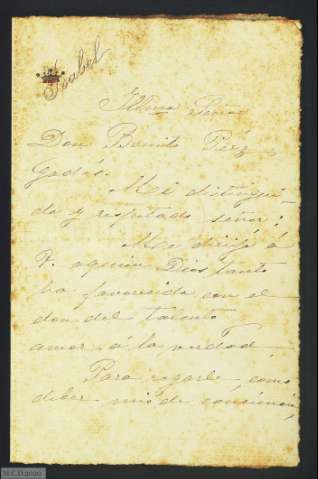 Isabel
Illmo Señor
Don Benito Pérez
Gados.
Mi distingui-
do y respetado señor:
Me dirijo á
V. aquien Dios tanto
ha favorecido con el
don del talento
amor á la verdad
Para rogarle, como
deber mio de conciencia,